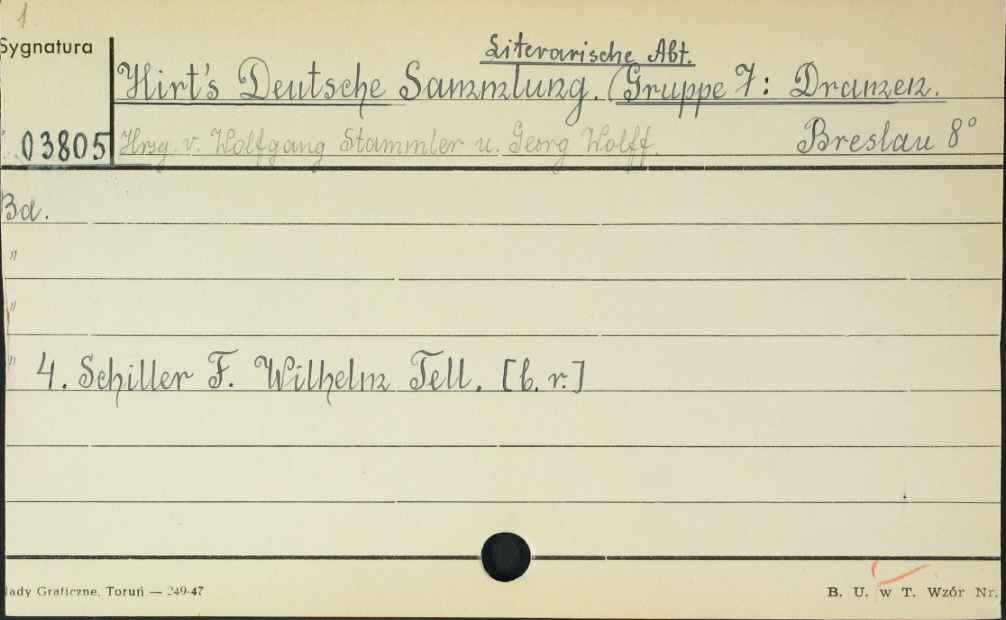 1
Sygnatura
Literarische Abt.
Hirt's Deutsche Sammlung. (Gruppe 7: Dramen.
03805
Hrsg. v. Wolfgang Stammler u. Georg Wolff.
Breslau 8°
Bd.
"
"
" 4. Schiller F. Wilhelm Tell. [b. r.]
łady Graficzne, Toruń — 249-47
B. U. w T. Wzór Nr.